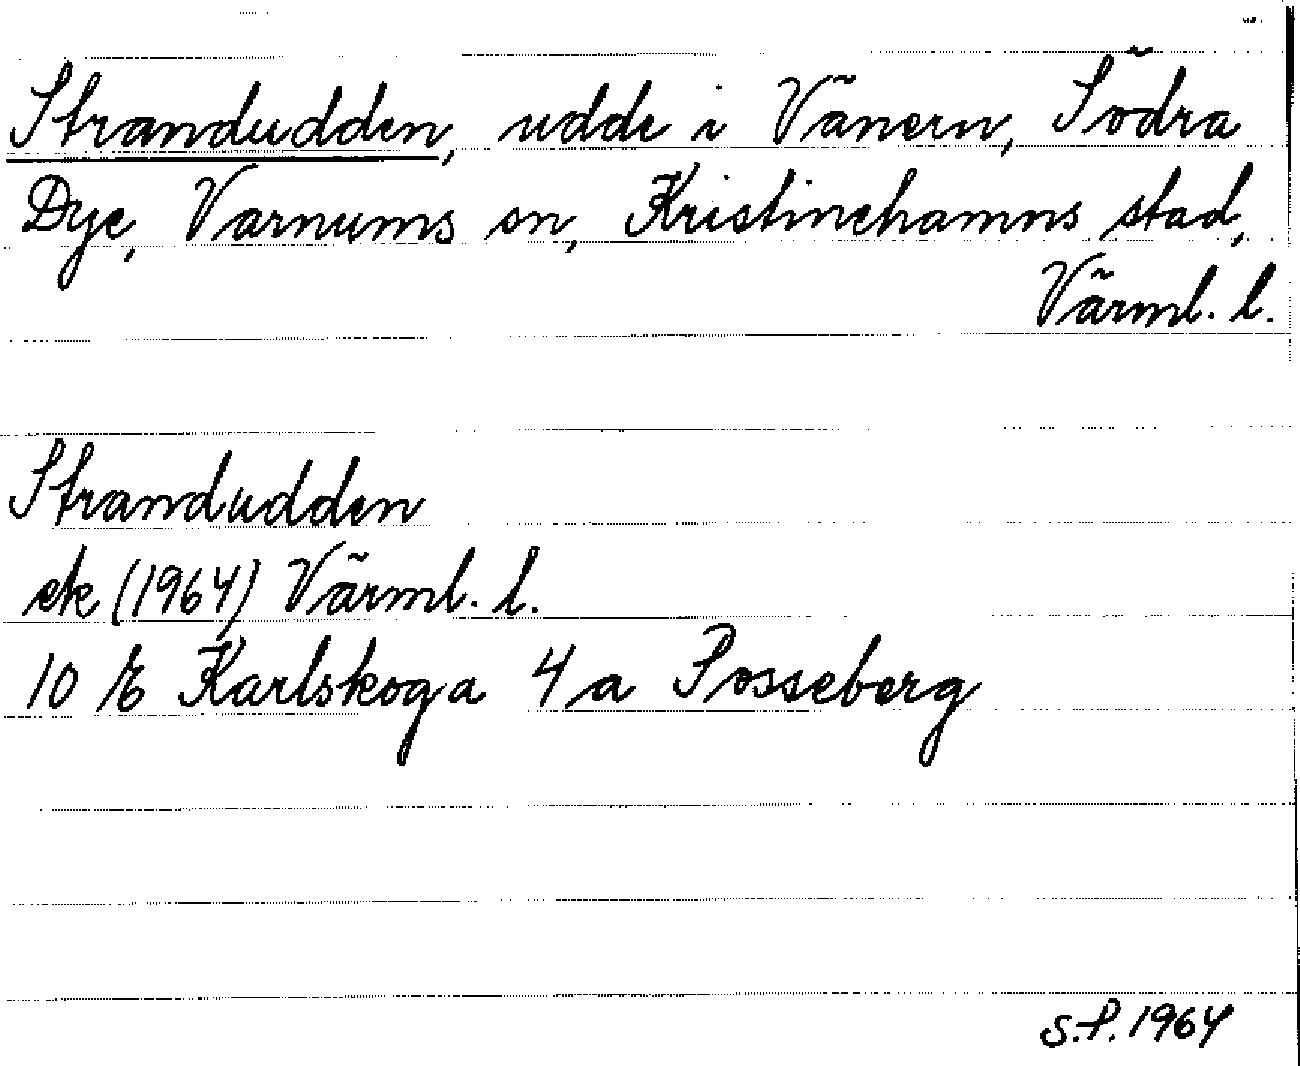 Strandudden, udde i Vänern, Södra
Dye, Varnums sn, Kristinehamns stad,
Värml. l.
Strandudden
ek (1964) Värml. l.
10 E Karlskoga 4 a Posseberg
S.P. 1964